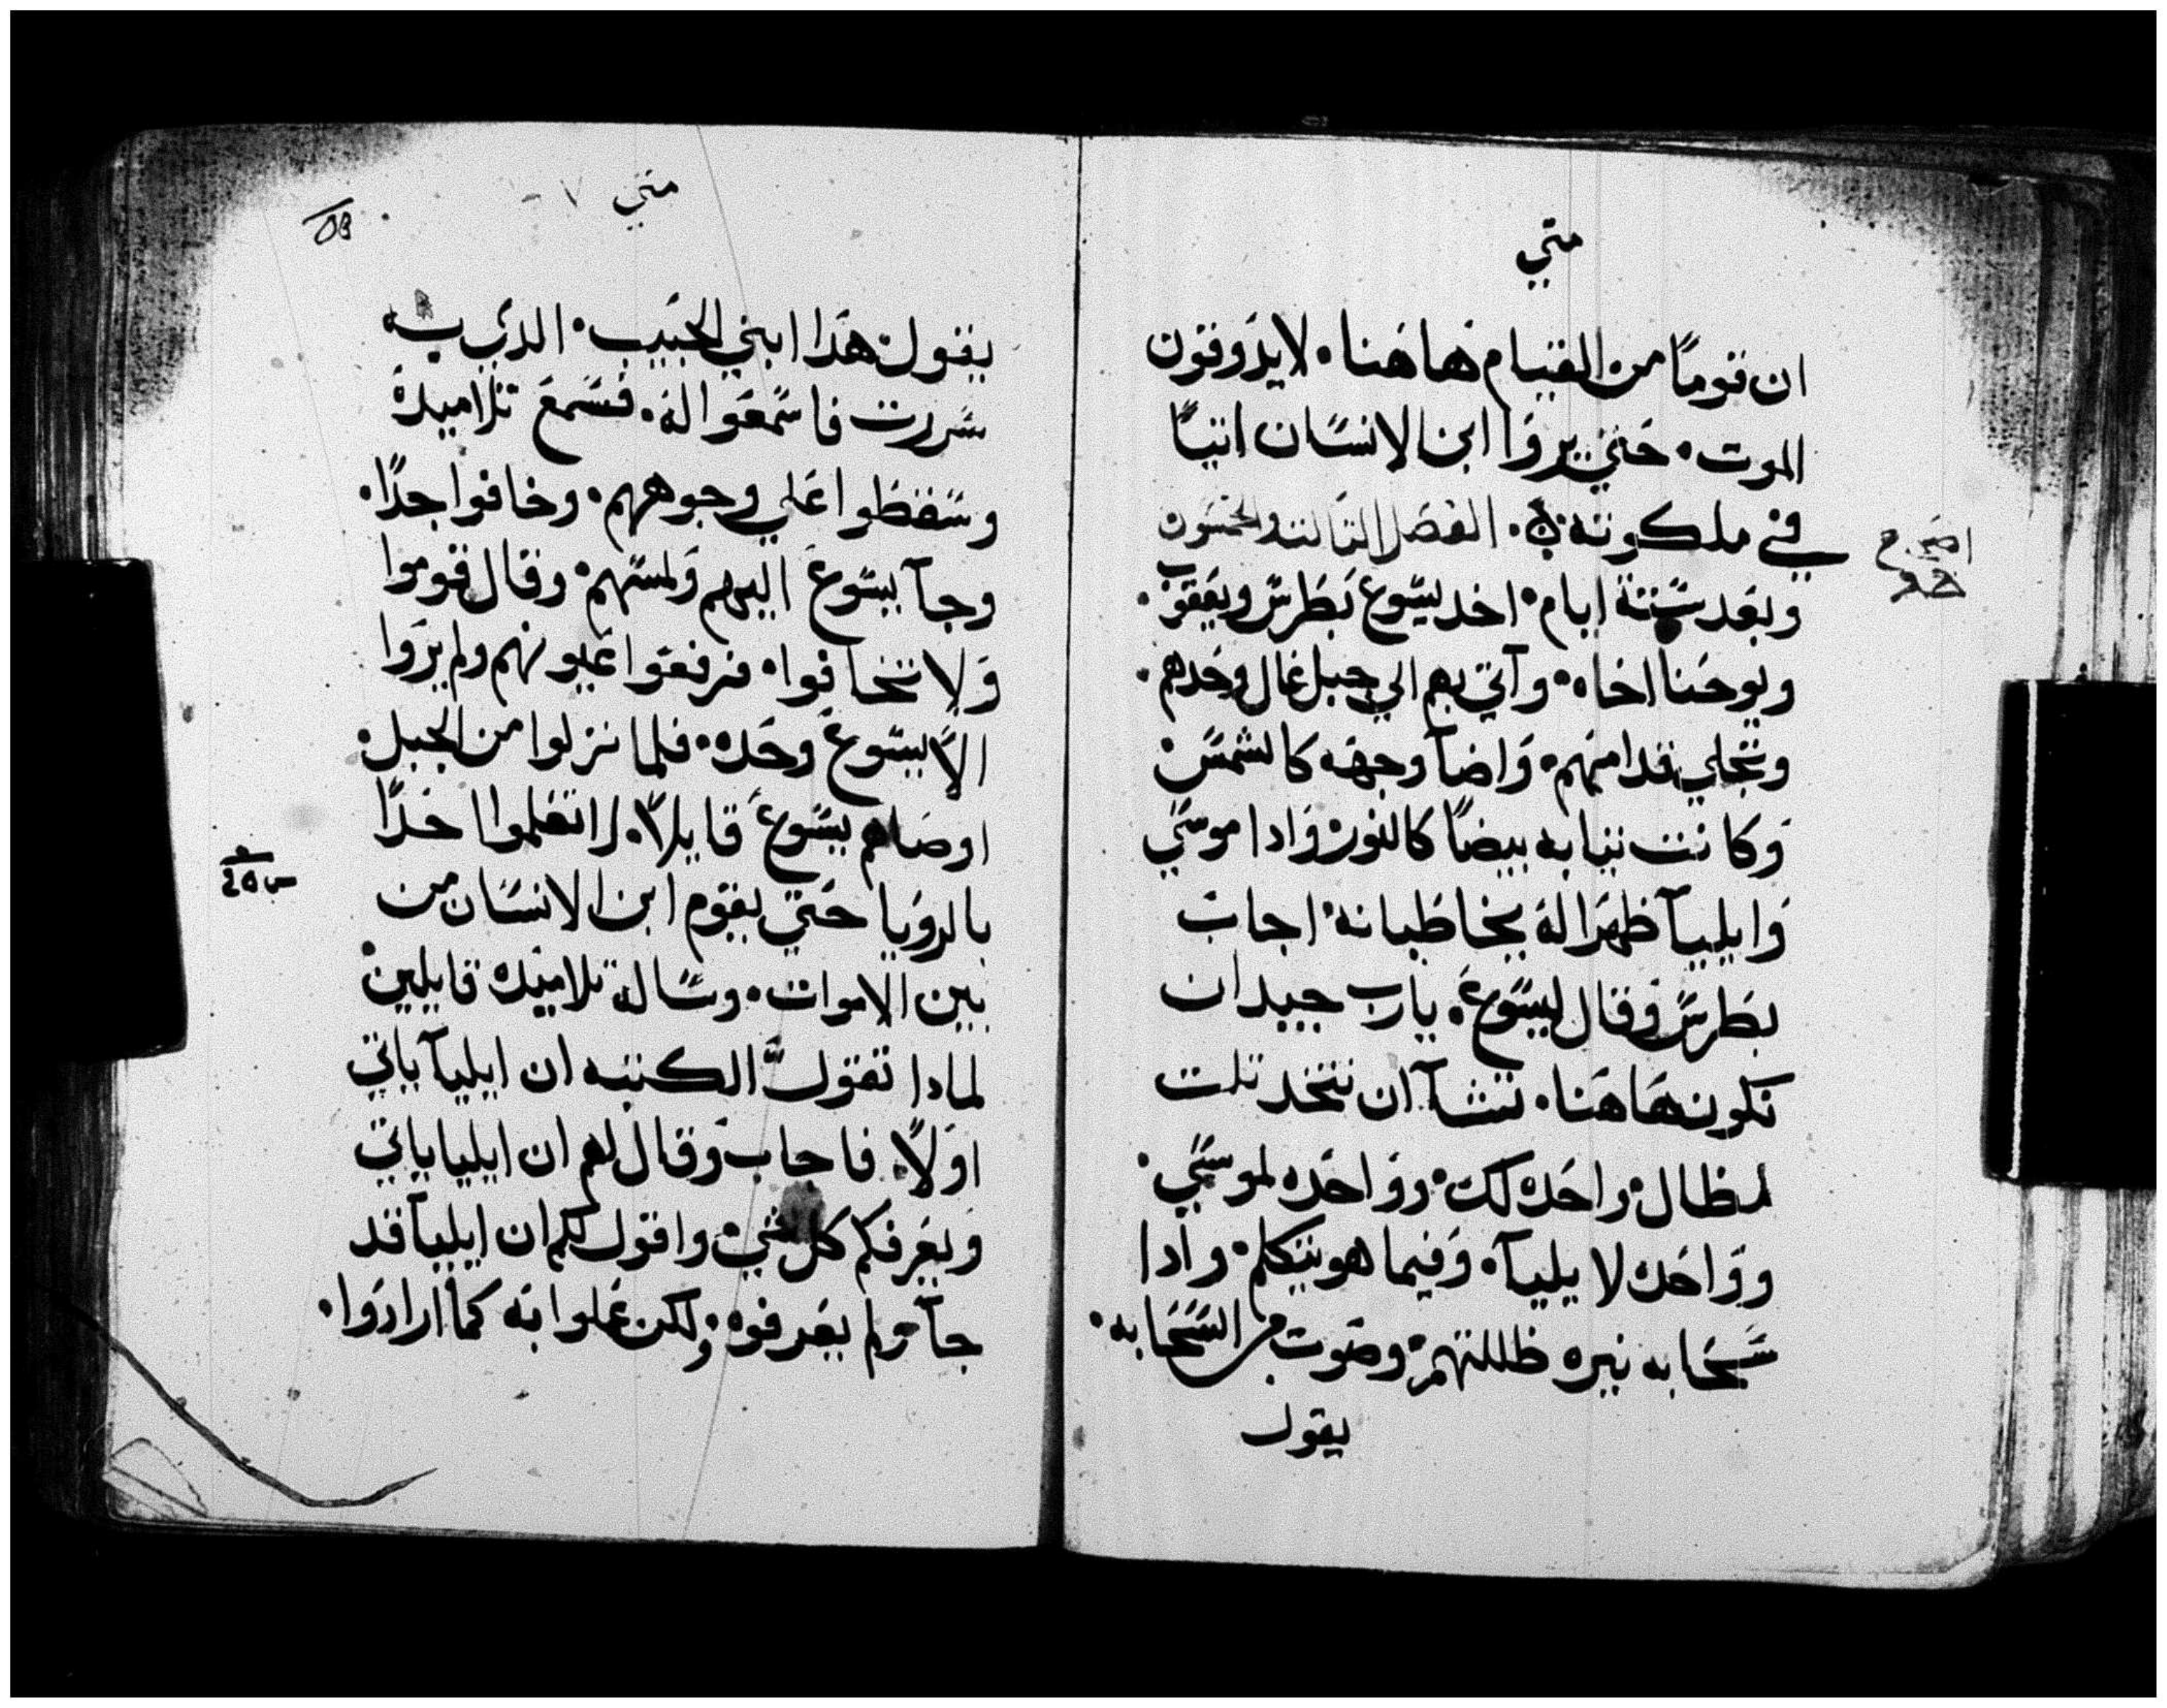 متي
ان قوماً من القيام هاهنا. لا يدوقون
الموت. حتي يروا ابن الانسان اتياً
في ملكوته. الفصل التالته والخمسون
وبعد ستة ايام. اخد يسوع بطرس ويعقوب.
ويوحنا اخاه. وآتي بهم الي جبل عال وحدهم.
وتجلي قدامهم. واضآ وجهه كالشمس.
وكانت تيابه بيضاً كالنور. وادا موسي
وايليآ ظهرا له يخاطبانه. اجاب
بطرس وقال ليسوع. يارب جيد ان
نكون هاهنا. تشآ ان نتخد تلت
مظال. واحده لك. وواحده لموسي.
وواحده لايليآ. وفيما هو يتكلم. وادا
سحابه نيره ظللتهم. وصوت من السحابه.
يقول
متي
يقول هدا ابني الحبيب. الدي به
سررت فاسمعوا له. فسمع تلاميده
وسقطوا علي وجوههم. وخافوا جداً.
وجآ يسوع اليهم ولمسهم. وقال قوموا
ولا تخافوا. فرفعوا عيونهم ولم يروا
الاّ يسوع وحده. فلما نزلوا من الجبل.
اوصاهم يسوع قايلاً. لا تعلموا احداً
بالرويا حتي يقوم ابن الانسان من
بين الاموات. وساله تلاميده قايلين.
لمادا تقول الكتبه ان ايليآ ياتي
اولاً. فاجاب وقال لهم ان ايليا ياتي
ويعرفكم كل شي. واقول لكم ان ايليآ قد
جآ ولم يعرفوه. ولكن عملوا به كما ارادوا.